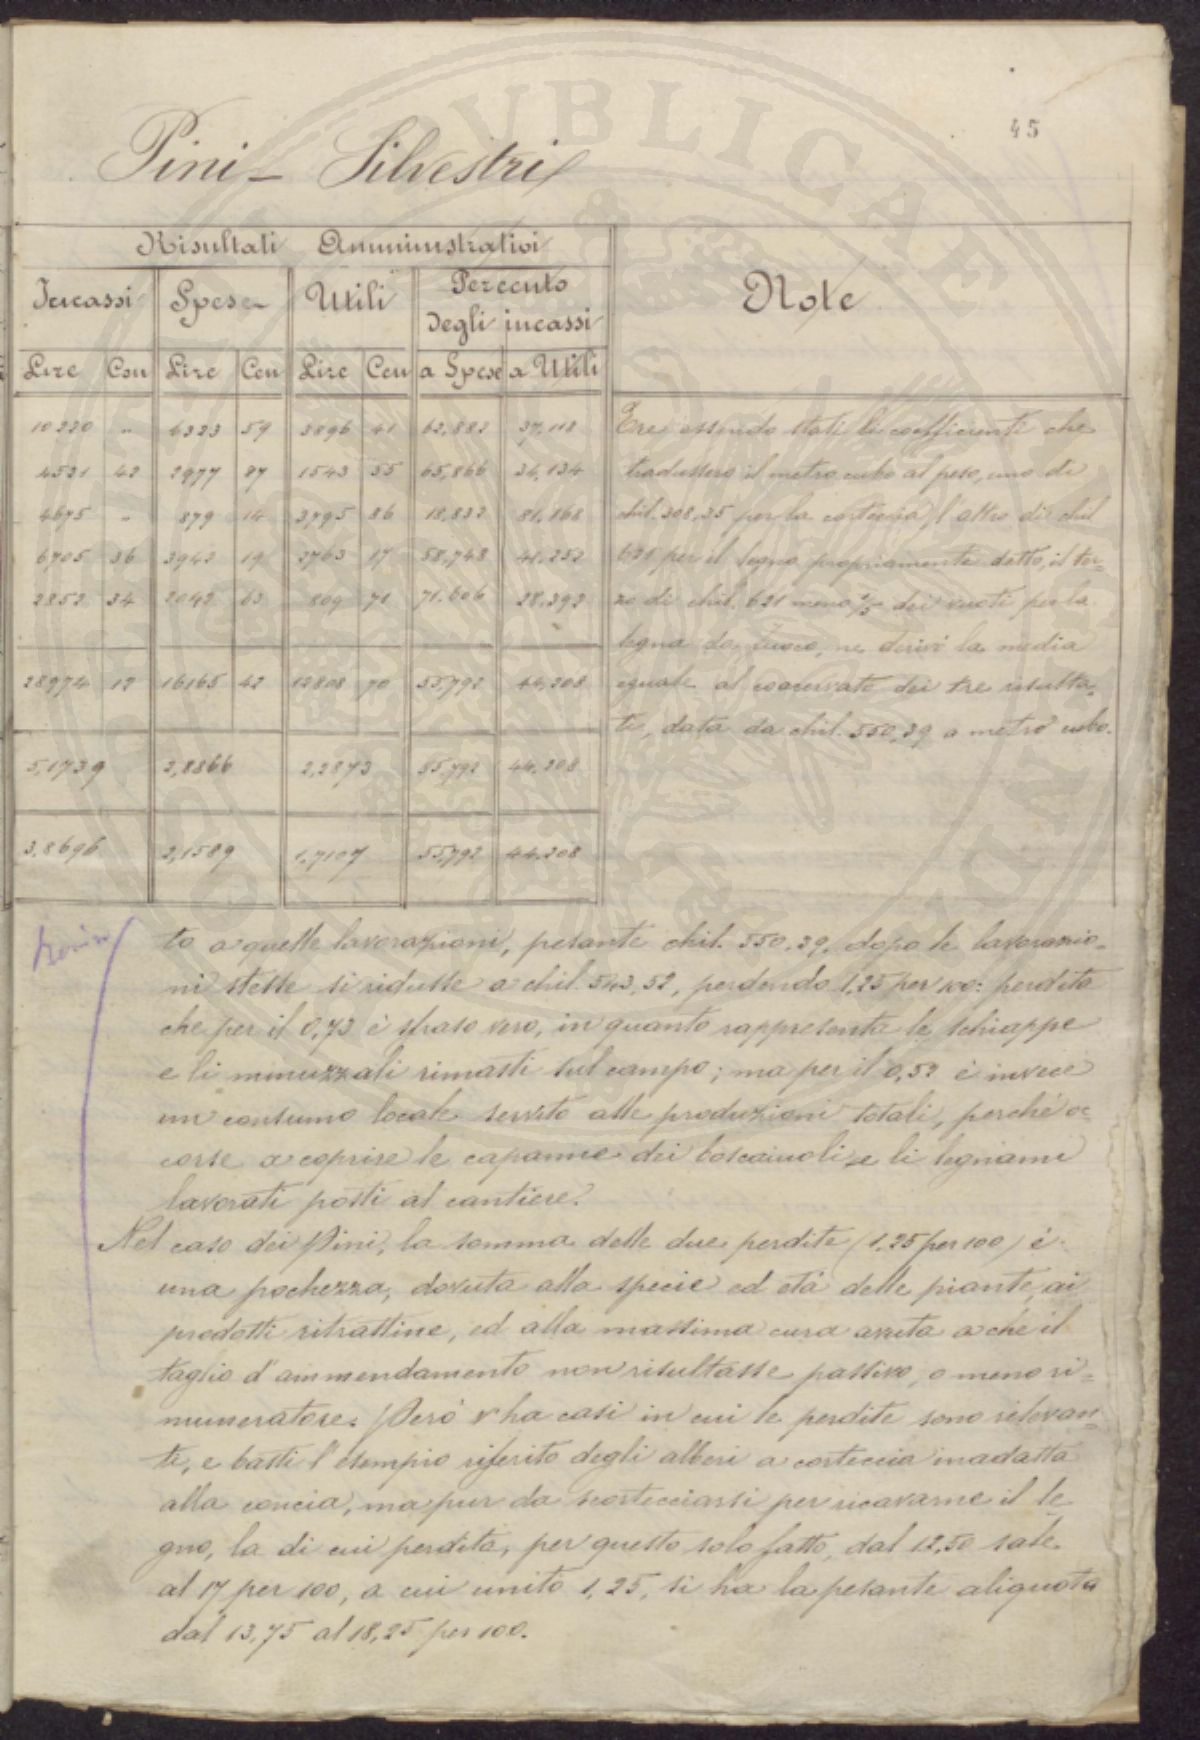 45
Pini - Silvestri
Risultati Amministrativi
Incassi Spese Utili Percento degli incassi Note
Lire Cen Lire Cen Lire Cen a Spese a Utili
10220 " 6323 59 3896 41 62,882 37,118
4521 42 2977 87 1543 55 65,866 34,134
4675 " 879 14 3795 86 18,832 81,168
6705 36 3942 19 2763 17 58,748 41,252
2852 34 2042 63 809 71 71.606 28.392
28974 12 16165 42 12808 70 55,792 44,208
5,1739 2,8866 2,2873 55,792 44,208
3,8696 2,1589 1,7107 55,792 44,208
Tre essendo stati li coefficienti che
tradussero il metro cubo al peso, uno di
chil. 308,35 per la corteccia, l'altro di chil
621 per il legno propriamente detto, il ter-
zo di chil. 621 meno 1/5 dei vuoti per la
legna da fuoco, ne derivò la media
eguale al coacervato dei tre risulta-
ti, data da chil. 550,39 a metro cubo.
to a quelle lavorazioni, pesante chil. 550,39, dopo le lavorazio-
ni stesse si ridusse a chil. 543,52, perdendo 1,25 per 100: perdita
che per il 0,73 è spraso vero, in quanto rappresenta le schiappe
e li minuzzali rimasti sul campo; ma per il 0,52 è invece
un consumo locale servito alle produzioni totali, perché oc
corse a coprire le capanne dei boscaiuoli e li legnami
lavorati posti al cantiere.
Nel caso dei Pini, la somma delle due perdite (1,25 per 100) è
una pochezza, dovuta alla specie ed età delle piante, ai
prodotti ritrattine, ed alla massima cura avuta a che il
taglio d'ammendamento non risultasse passivo, o meno ri-
muneratore. Però v'ha casi in cui le perdite sono rilevan-
ti, e basti l'esempio riferito degli alberi a corteccia inadatta
alla concia, ma pur da scortecciarsi per ricavarne il le
gno, la di cui perdita, per questo solo fatto, dal 12,50 sale
al 17 per 100, a cui unito 1,25, si ha la pesante aliquota
dal 13,75 al 18,25 per 100.